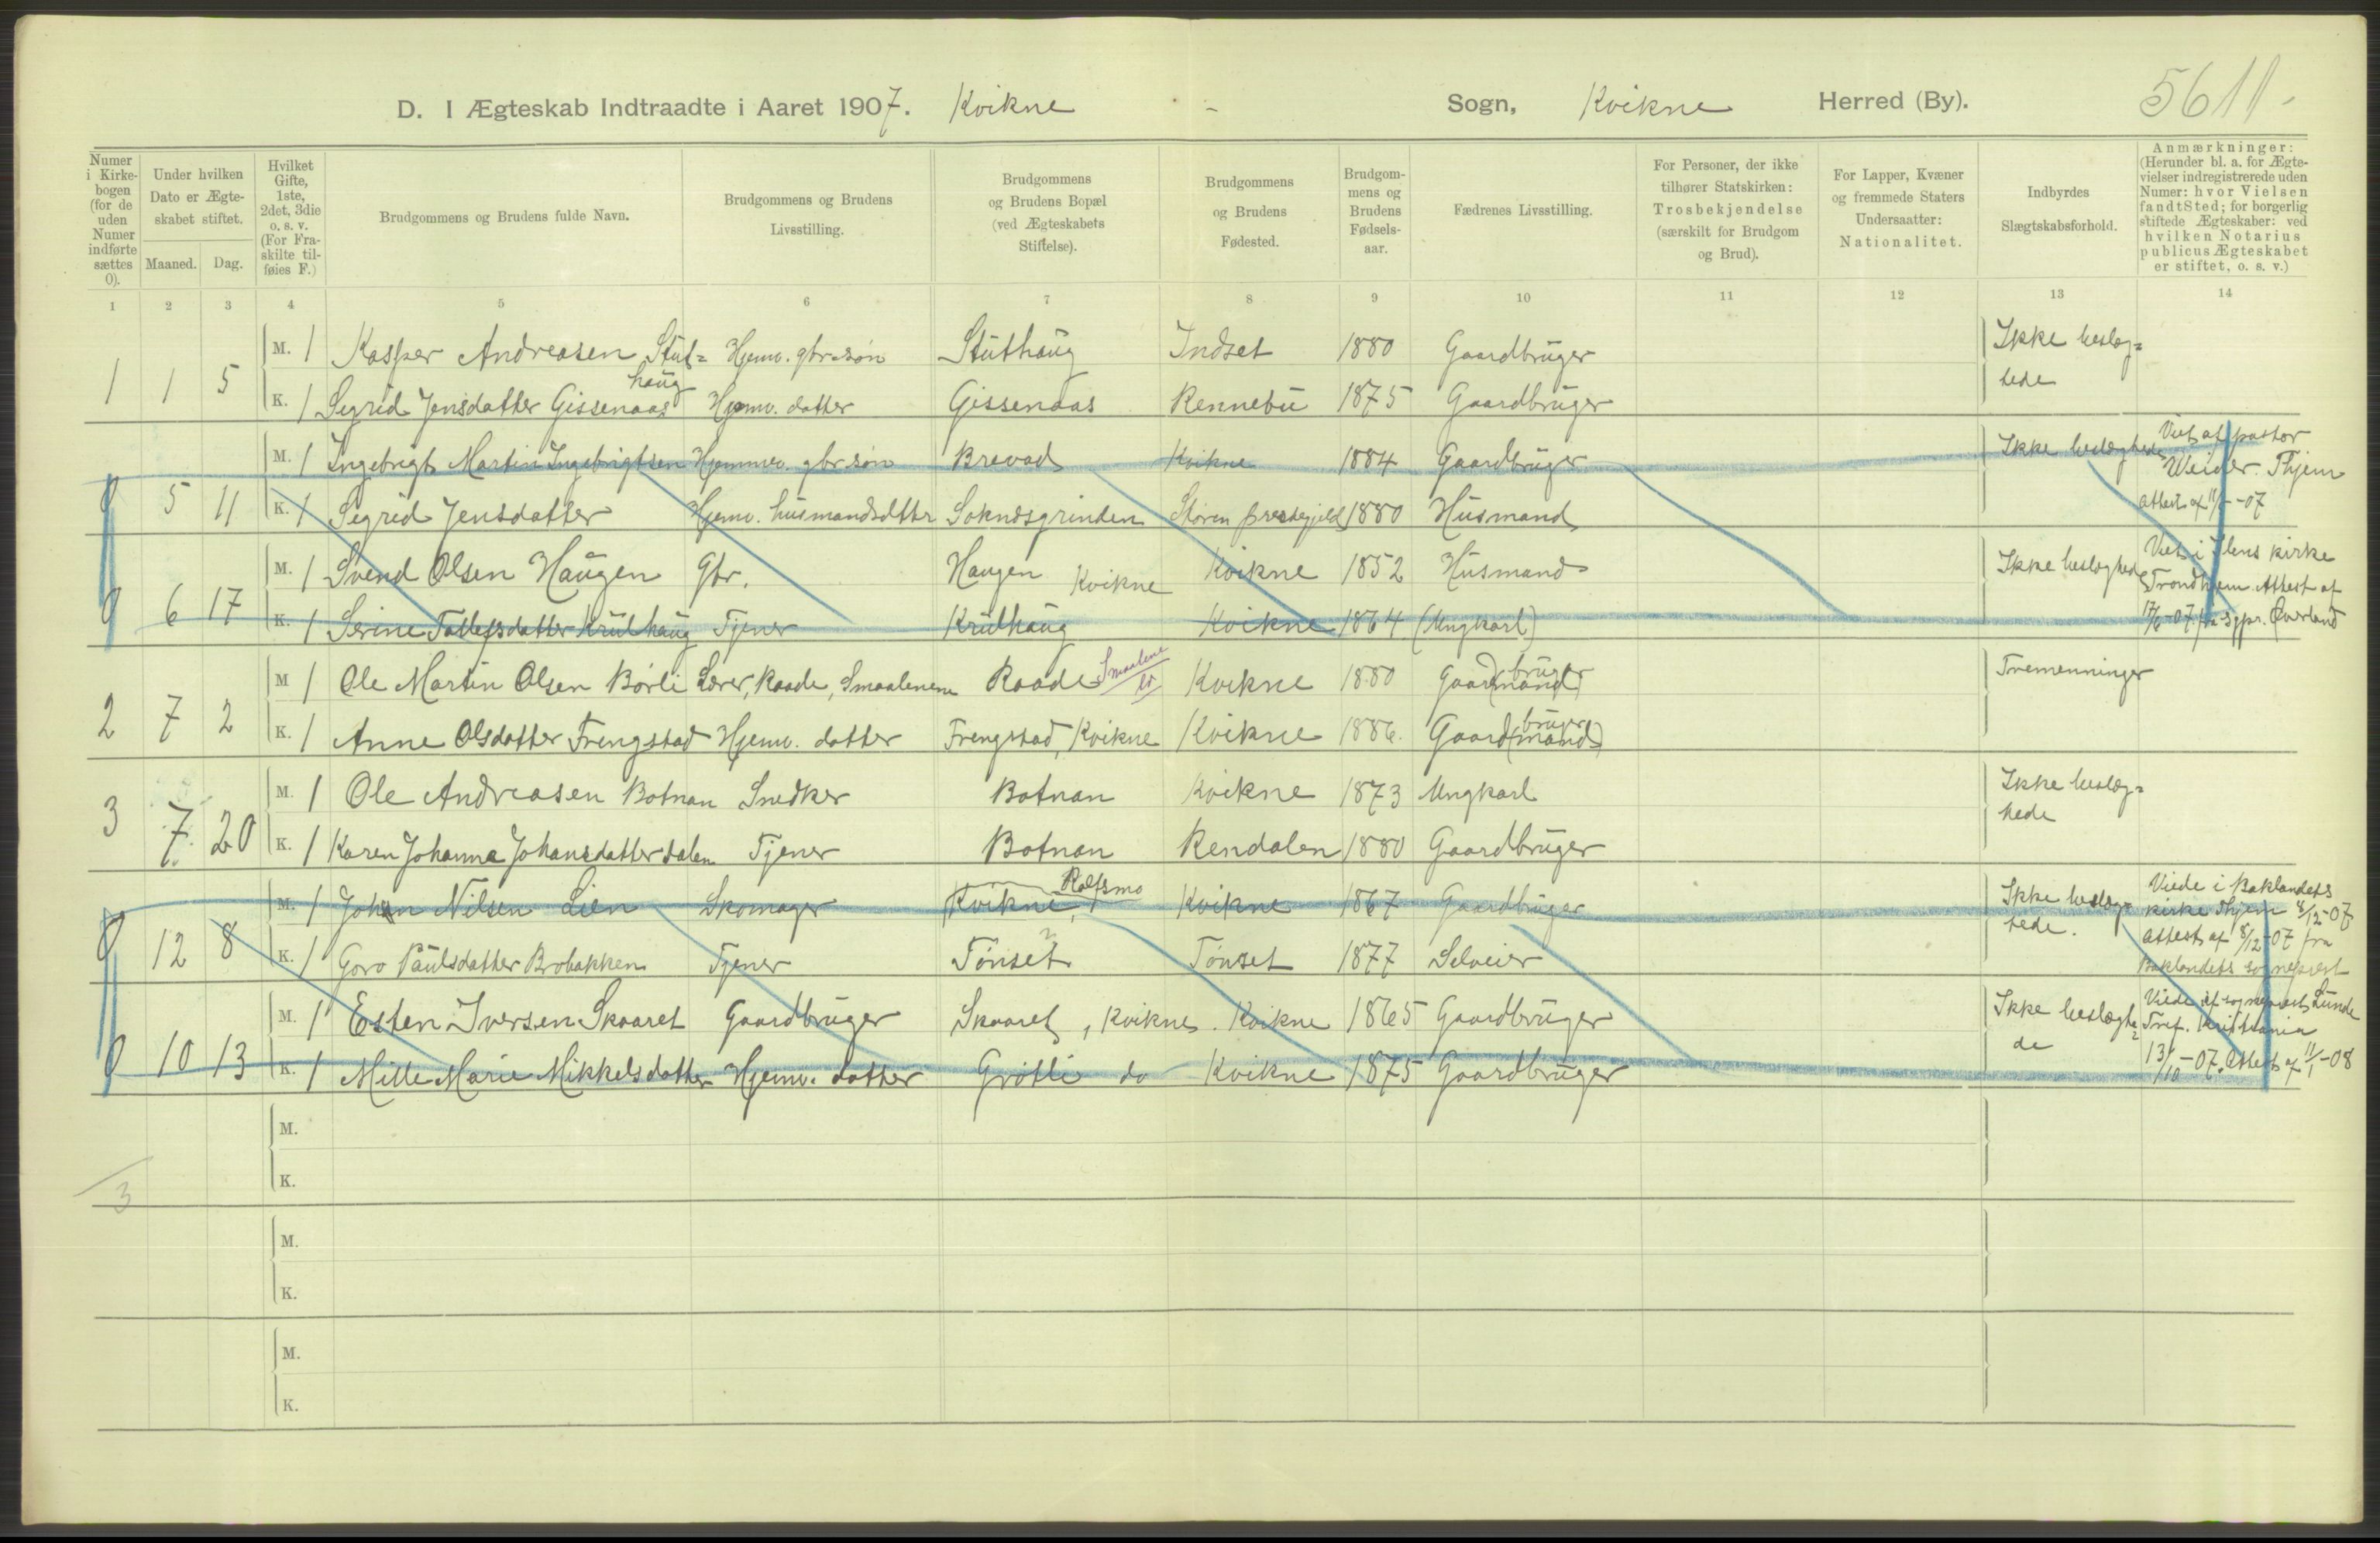 5611-
D. I Ægteskab Indtraadte i Aaret 1907. Kvikne - Sogn, Kvikne Herred (By).
Numer i Kirkebogen (for de uden Numer indførte sættes 0).
Under hvilken Dato er Ægteskabet stiftet.
Maaned. Dag.
Hvilket Gifte, 1ste, 2det, 3die o. s. v. (For Fraskilte tilføies F.)
Brudgommens og Brudens fulde Navn.
Brudgommens og Brudens Livsstilling.
Brudgommens og Brudens Bopæl (ved Ægteskabets Stiftelse).
Brudgommens og Brudens Fødested.
Brudgommens og Brudens Fødselsaar.
Fædrenes Livsstilling.
For Personer, der ikke tilhører Statskirken: Trosbekjendelse (særskilt for Brudgom og Brud).
For Lapper, Kvæner og fremmede Staters Undersaatter: Nationalitet.
Indbyrdes Slægtskabsforhold.
Anmærkninger: (Herunder bl. a. for Ægtevielser indregistrerede uden Numer: hvor Vielsen fandt Sted; for borgerlig stiftede Ægteskaber: ved hvilken Notarius publicus Ægteskabet er stiftet, o. s. v.)
1 2 3 4 5 6 7 8 9 10 11 12 13 14
1 1 5 M. 1 Kasper Andreasen Stut=haug Hjemv. gbr.søn Stuthaug Indset 1880 Gaardbruger Ikke beslæg=
K. 1 Sigrid Jensdatter Gissenaas Hjemv. datter Gissenaas Rennebu 1875 Gaardbruger tede
0 5 11 M. 1 Ingebrigt Martin Ingebrigtsen Hjemmev. gbr.søn Brevad Kvikne 1884 Gaardbruger Ikke beslægtede Viet af pastor
Thjem
K. 1 Sigrid Jensdatter Hjemv. husmandsdttr Soknesgrinden Støren prestegjeld 1880 Husmand attest af -07
0 6 17 M. 1 Svend Olsen Haugen Gbr. Haugen Kvikne Kvikne 1852 Husmand Ikke beslægtede Viet i Ilens kirke
Trondhjem Attest af
K. 1 Serine Krulhaug Tjener Krulhaug Kvikne 1864 (Ungkarl) 17/6-07 fra sgpr. Øverland
2 7 2 M 1 Ole Martin Olsen Børli Lærer, Raade, Smaalenene Raade Smaalene Kvikne 1880 Gaard(mand) bruger Tremenninger
K. 1 Anne Olsdatter Frengstad Hjemv. datter Frengstad, Kvikne Kvikne 1886. Gaard(mand) bruger
3 7 20 M. 1 Ole Andreasen Botnan Snedker Botnan Kvikne 1873 Ungkarl Ikke beslæg=
K. 1 Karen Johanna Johansdatter dalen Tjener Botnan Rendalen 1880 Gaardbruger tede
0 12 8 M. 1 Johan Nilsen Lien Skomager Kvikne, Kvikne 1867 Gaardbruger Ikke beslæg= Viede i Baklandets
tede. kirke Thjem 8/12-07
K. 1 Goro Paulsdatter Brobakken Tjener Tønset Tønset 1877 Selveier attest af 8/12-07 fra
Baklandets sogneprest
0 10 13 M. 1 Esten Iversen Skaaret Gaardbruger Skaaret, Kvikne. Kvikne 1865 Gaardbruger Ikke beslægte= Viede af sogneprest Lunde
de Tref. Kristiania
K. 1 Mille Marie Mikkelsdatter Hjemv. datter Grøtli do Kvikne 1875 Gaardbruger 13/10-07. Attest af 11/1-08
M.
K.
3
M.
K.
M.
K.